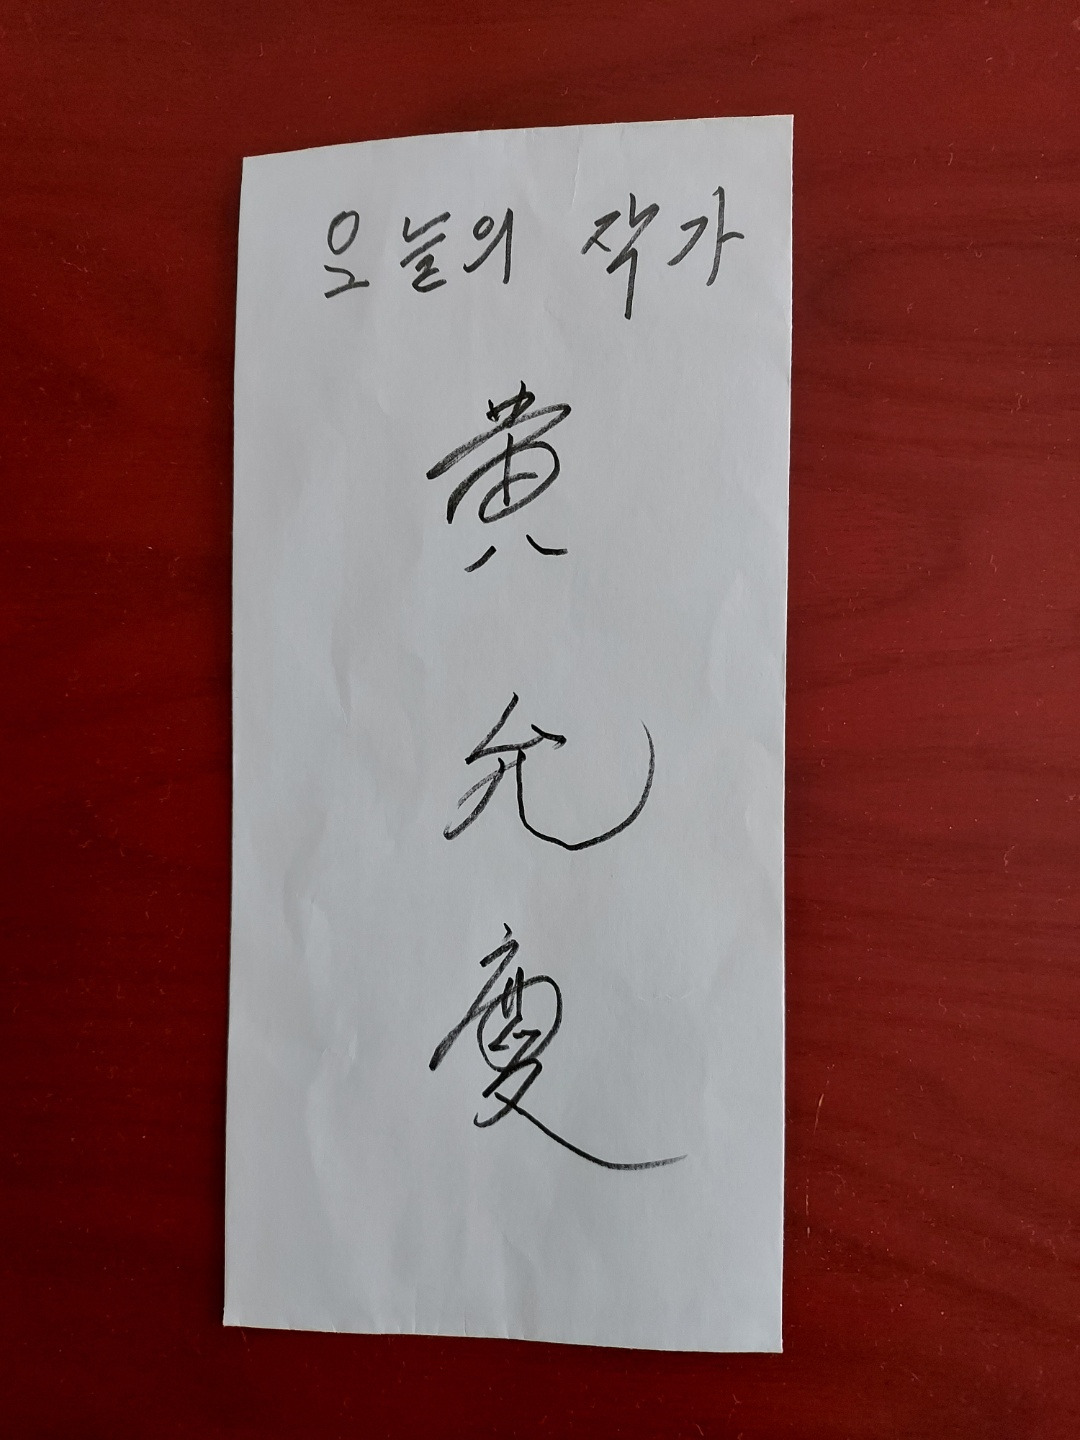 오늘의 작가
黃
允
慶